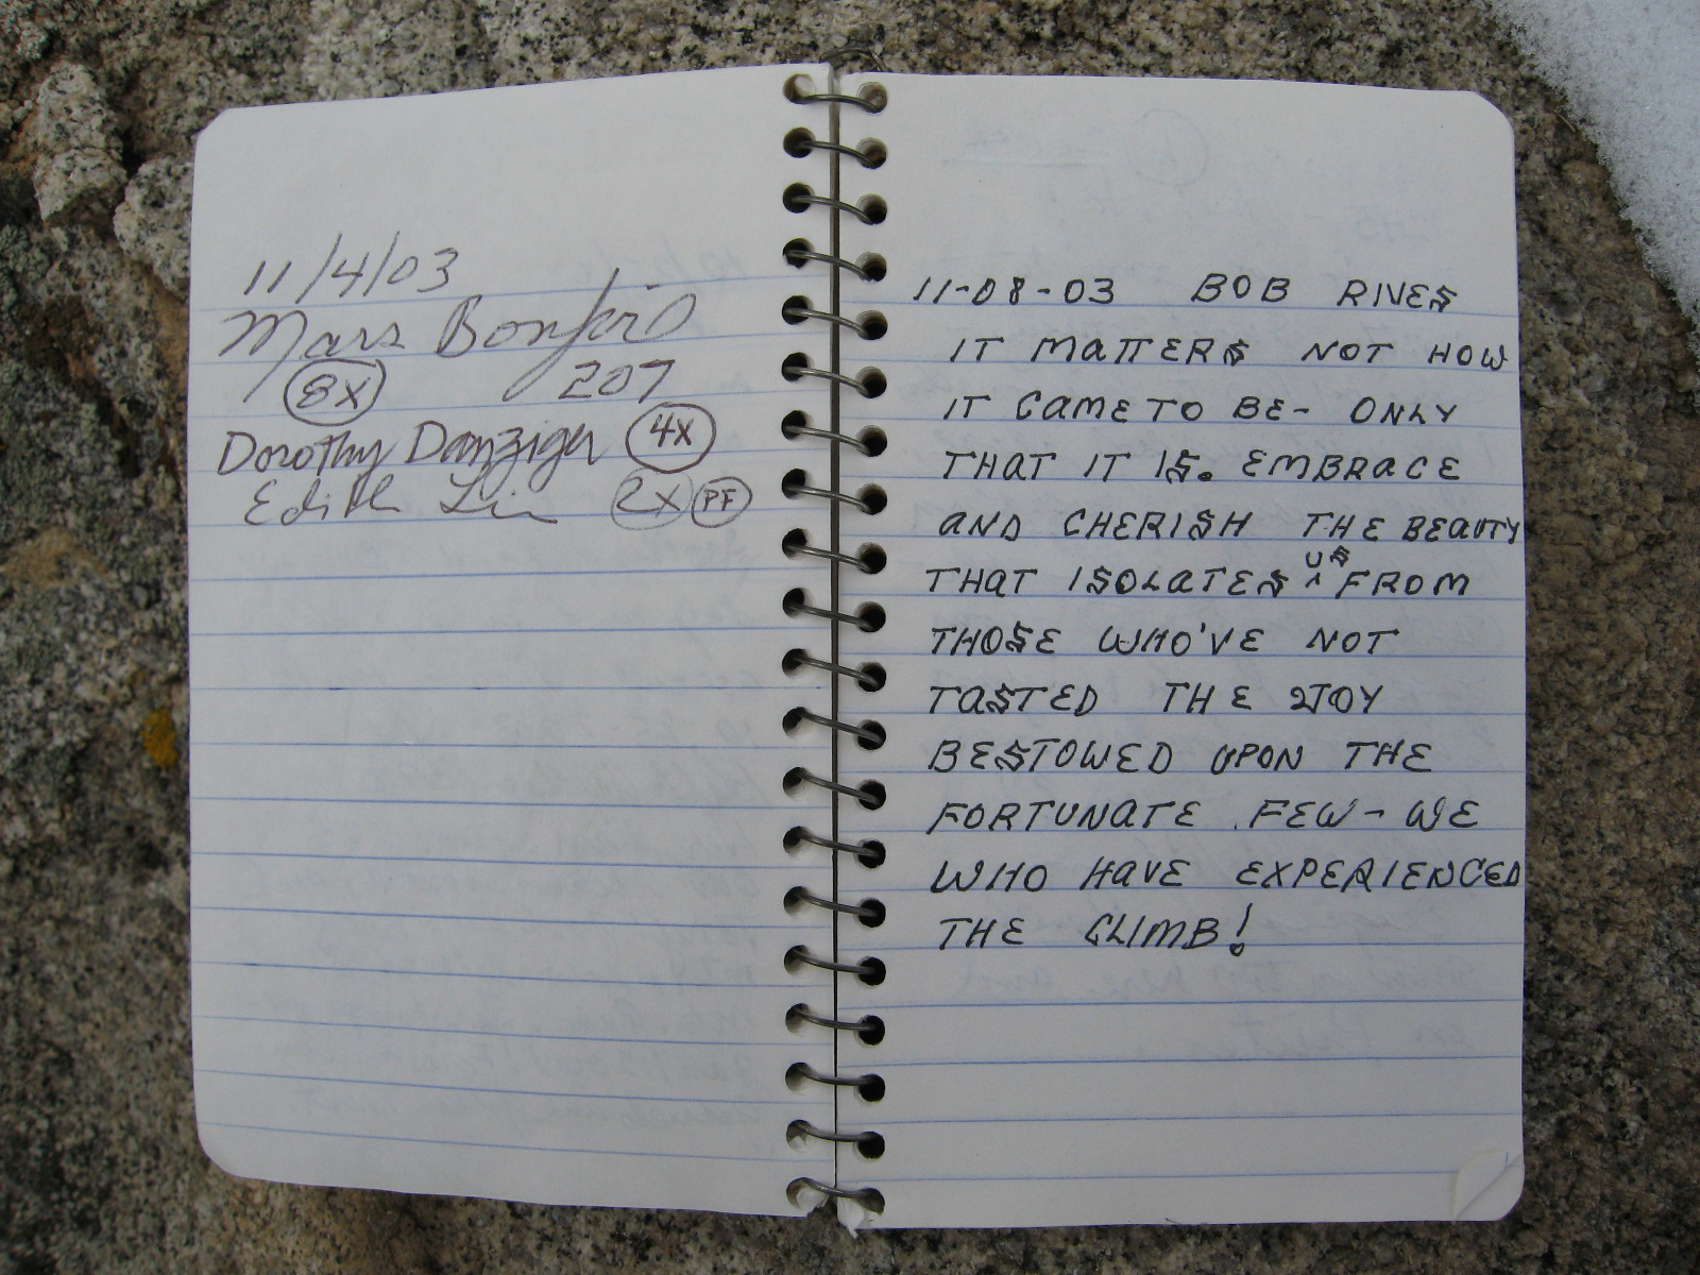 11/4/03
Mars Bonfire
8X 207
Dorothy Danziger 4X
Edith Liu 2X PF
11-08-03 BOB RIVES
IT MATTERS NOT HOW
IT CAME TO BE- ONLY
THAT IT IS. EMBRACE
AND CHERISH THE BEAUTY
THAT ISOLATES ^US FROM
THOSE WHO'VE NOT
TASTED THE JOY
BESTOWED UPON THE
FORTUNATE FEW- WE
WHO HAVE EXPERIENCED
THE CLIMB!